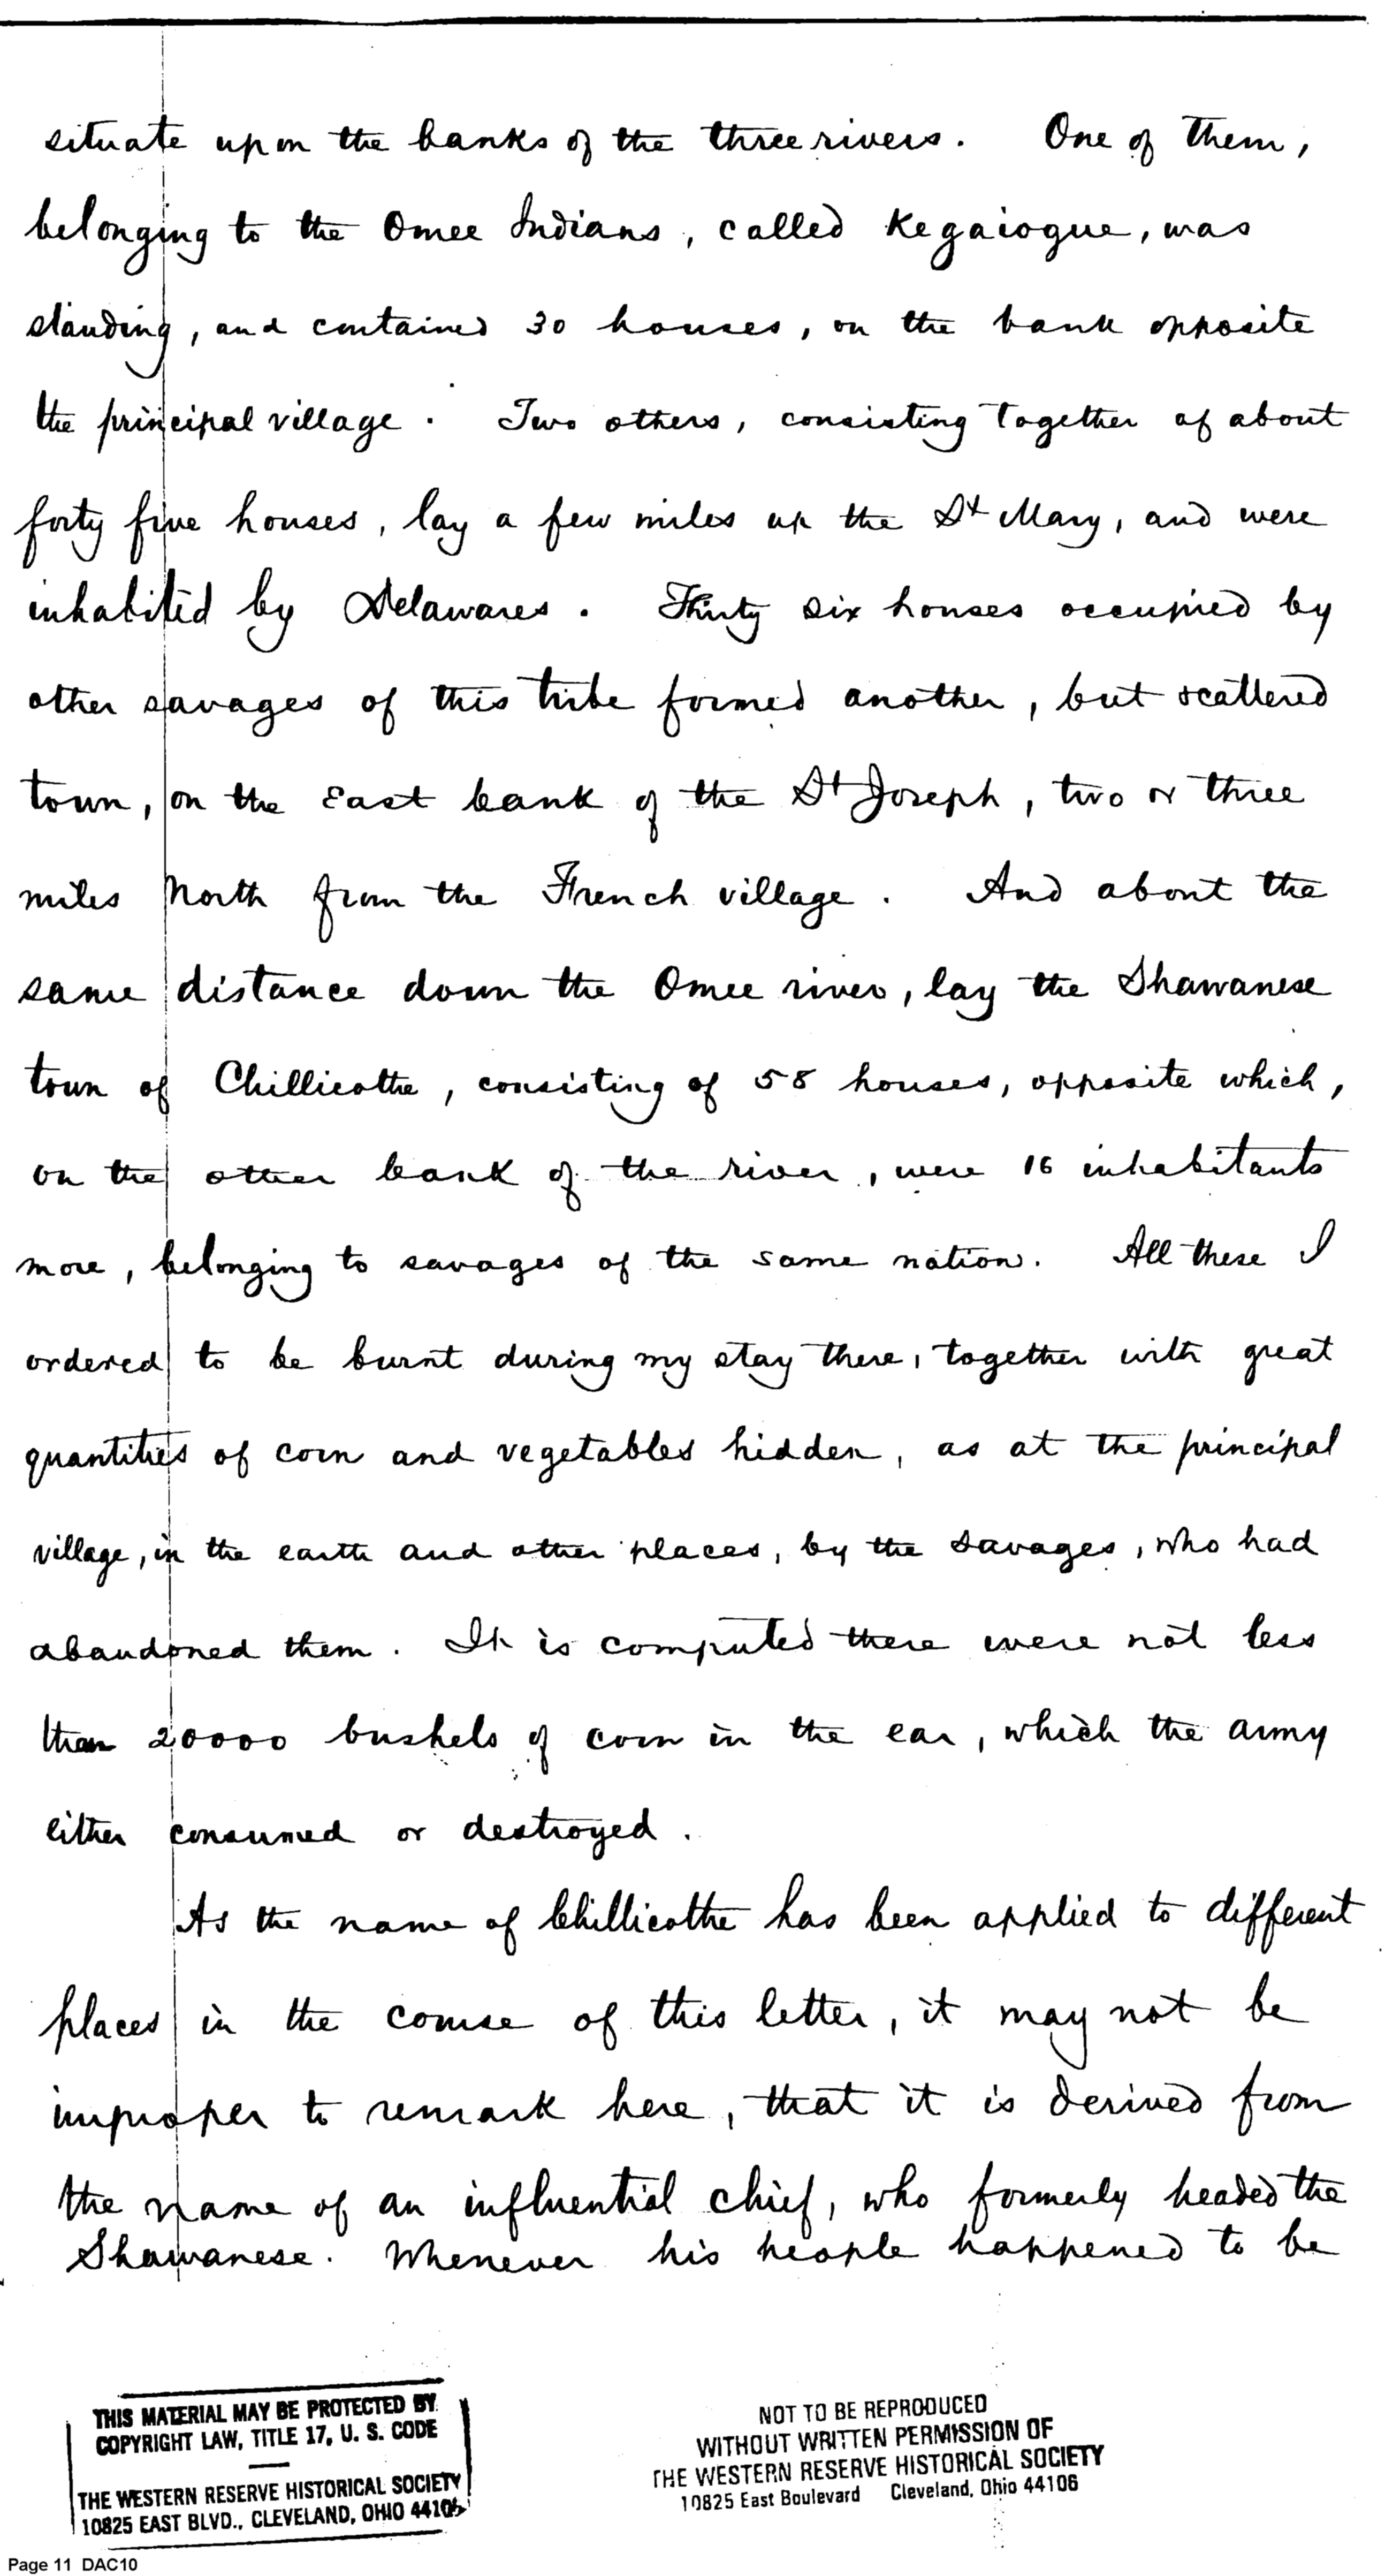 situate upon the banks of the three rivers. One of them,
belonging to the Omee Indians, called Kegaiogue, was
standing, and contained 30 houses, on the bank opposite
the principal village. Two others, consisting together of about
forty five houses, lay a few miles up the St Mary, and were
inhabited by Delawares. Thirty six houses occupied by
other savages of this tribe formed another, but scattered
town, on the East bank of the St Joseph, two or three
miles North from the French village. And about the
same distance down the Omee river, lay the Shawanese
town of Chillicothe, consisting of 58 houses, opposite which,
on the other bank of the river, were 16 inhabitants
more, belonging to savages of the same nation. All these I
ordered to be burnt during my stay there, together with great
quantities of corn and vegetables hidden, as at the principal
village, in the earth and other places, by the savages, who had
abandoned them. It is computed there were not less
than 20000 bushels of corn in the ear, which the army
either consumed or destroyed.
As the name of Chillicothe has been applied to different
places in the course of this letter, it may not be
improper to remark here, that it is derived from
the name of an influential chief, who formerly headed the
Shawanese. Whenever his people happened to be
THIS MATERIAL MAY BE PROTECTED BY
COPYRIGHT LAW, TITLE 17, U. S. CODE
THE WESTERN RESERVE HISTORICAL SOCIETY
10825 EAST BLVD., CLEVELAND, OHIO 44106
NOT TO BE REPRODUCED
WITHOUT WRITTEN PERMISSION OF
THE WESTERN RESERVE HISTORICAL SOCIETY
10825 East Boulevard Cleveland, Ohio 44106
Page 11 DAC10